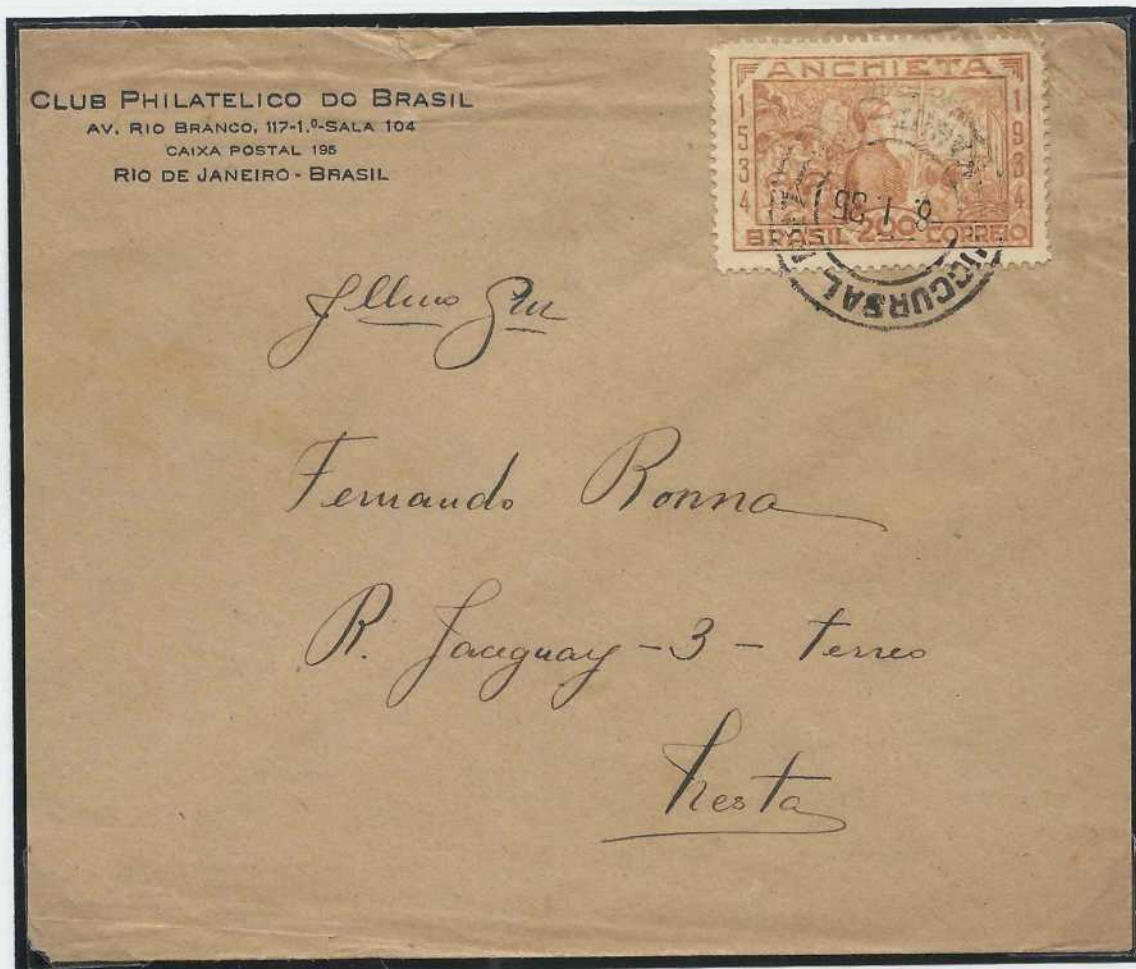 CLUB PHILATELICO DO BRASIL
AV. RIO BRANCO, 117-1.º-SALA 104
CAIXA POSTAL 195
RIO DE JANEIRO - BRASIL
ANCHIETA
1534
1934
BRASIL 200 CORREIO
SUCCURSAL
8. 1. 35
Illmo Snr
Fernando Ronna
R. Jaceguay - 3 - terreo
Nesta